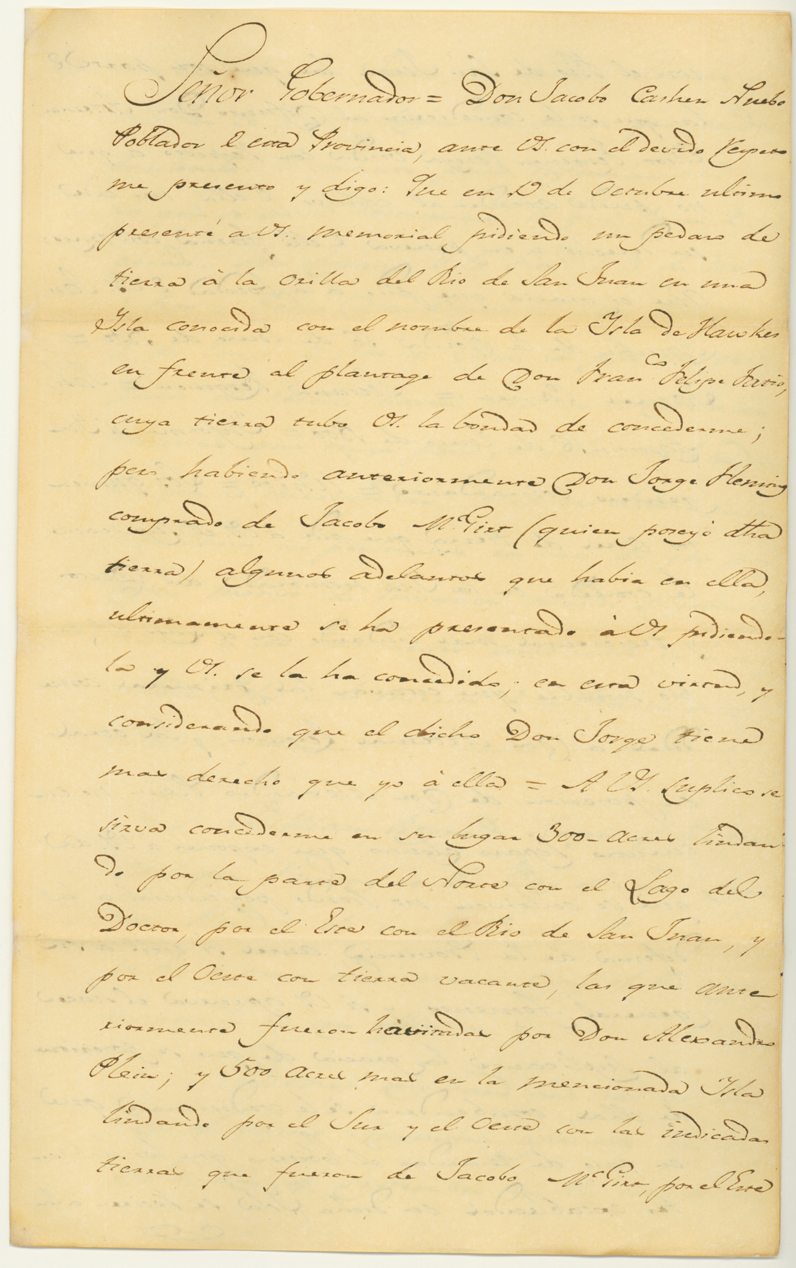 Señor Gobernador = Don Jacobo Cashen Nuebo
Poblador de esta Provincia, ante VS. con el devido respeto
me presento y digo: Que en 12 de Octubre ultimo
presenté a VS. memorial pidiendo un pedaso de
tierra à la orilla del Rio de San Juan en una
Ysla conocida con el nombre de la Ysla de Hawkes
en frente al plantage de Don Fran.co Felipe Fatio,
cuya tierra tubo VS. la bondad de concederme;
pero habiendo anteriormente Don Jorge Fleming
comprado de Jacobo McGirt (quien poseyó dha
tierra) algunos adelantos que habia en ella,
ultimamente se ha presentado à VS pidiendo-
la y VS. se la ha concedido; en esta virtud, y
considerando que el dicho Don Jorge tiene
mas derecho que yo à ella = A VS. suplico se
sirva concederme en su lugar 300- acres lindan
do por la parte del Norte con el Lago del
Doctor, por el Este con el Rio de San Juan, y
por el Oeste con tierra vacante, las que ante
riormente fueron havitadas por Don Alexandro
Plein; y 500 acres mas en la mencionada Ysla
lindando por el Sur y el Oeste con las indicadas
tierras que fueron de Jacobo McGirt, por el Este